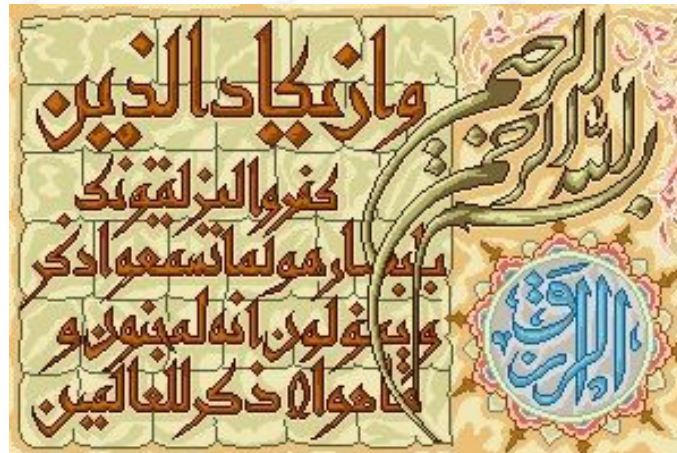 بسم الله الرحمن الرحيم
وان يكاد الذين
كفروا ليزلقونك
بابصارهم لما تسمعوا ذكر
و يقولون انه لمجنون و
ما هو الا ذكر للعالمين
الرزاق